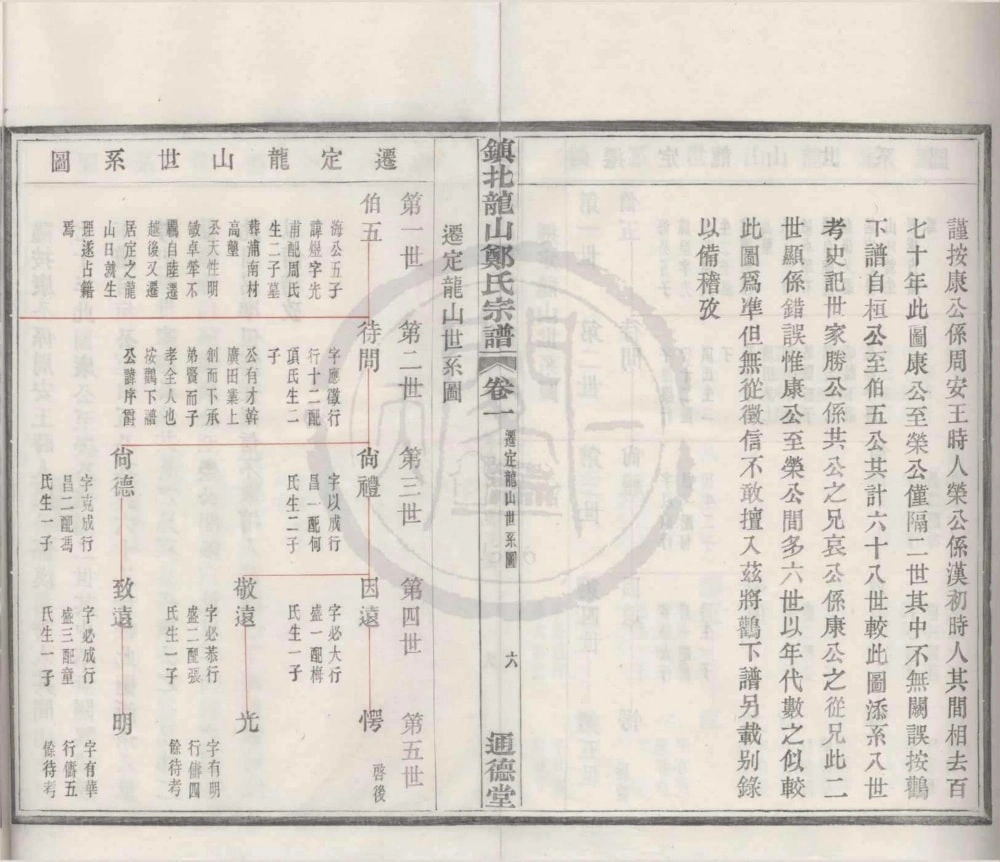 謹按康公係周安王時人榮公係漢初時人其間相去百
七十年此圖康公至榮公僅隔二世其中不無闕誤按鸛
下譜自桓公至伯五公共計六十八世較此圖添系八世
考史記世家勝公係共公之兄哀公係康公之從兄此二
世顯係錯誤惟康公至榮公間多六世以年代數之似較
此圖爲凖但無從徵信不敢擅入茲將鸛下譜另載别錄
以備稽攷
鎮北龍山鄭氏宗譜
卷一
遷定龍山世系圖
六
通德堂
遷定龍山世系圖
遷定龍山世系圖
第一世
第二世
第三世
第四世
第五世
伯五
海公五子
諱燈字光
甫配周氏
生二子墓
葬浦南村
高塾
公天性明
敏卓犖不
羈自陸遷
越後又遷
居定之龍
山日就生
理遂占籍
焉
待問
字應徵行
行十二配
項氏生二
子
公有才幹
廣田業上
創而下承
弟賢而子
孝全人也
按鸛下譜
公諱序爵
尙禮
字以成行
昌一配何
氏生二子
尙德
字克成行
昌二配馮
氏生一子
因遠
字必大行
盛一配梅
氏生一子
敬遠
字必恭行
盛二配張
氏生一子
致遠
字必成行
盛三配童
氏生一子
愕
啓後
光
字有明
行儕四
餘待考
明
字有華
行儕五
餘待考